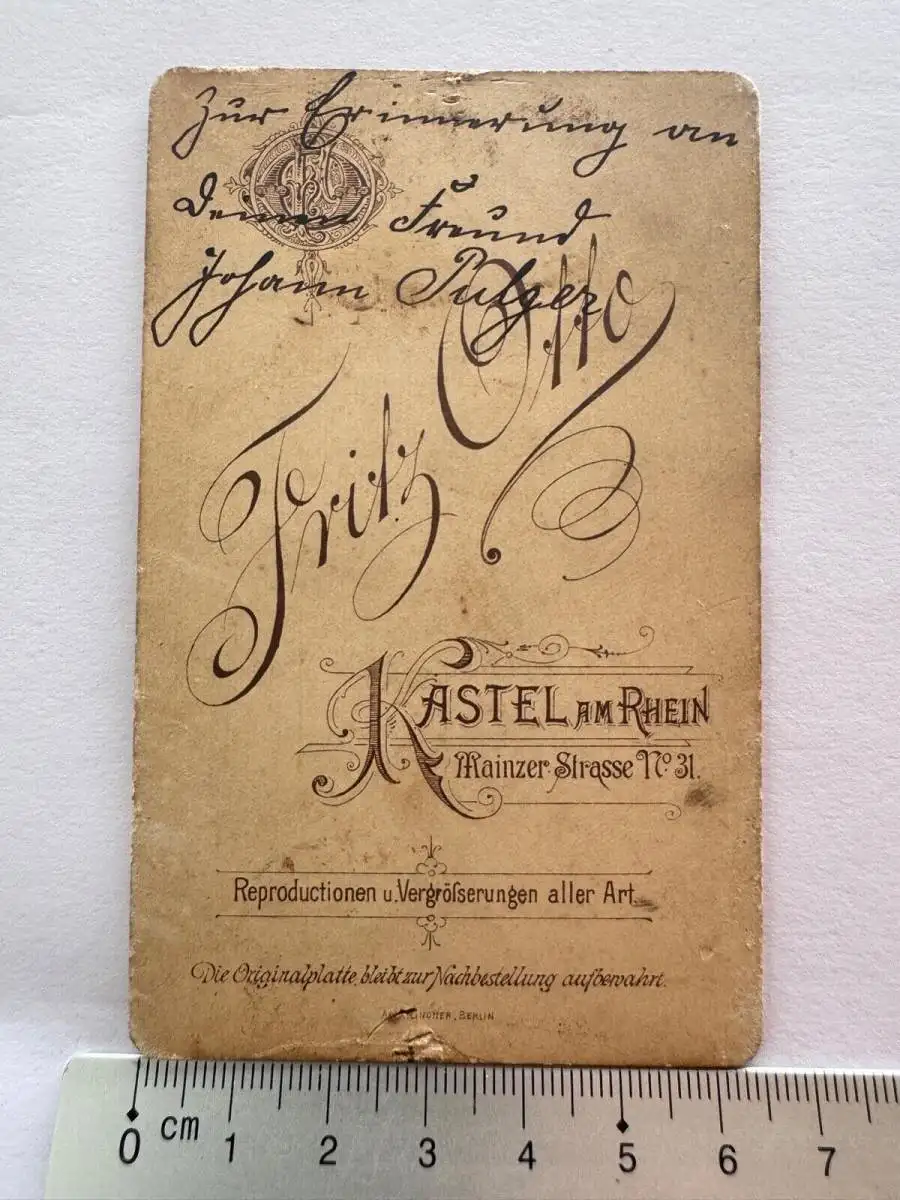 Zur Erinnerung an
Deinen Freund
Johann Pulger
Fritz Otto
KASTEL AM RHEIN
Mainzer Strasse No 31.
Reproductionen u. Vergrößserungen aller Art.
Die Originalplatte bleibt zur Nachbestellung aufbewahrt.
BERLIN
0 cm 1 2 3 4 5 6 7